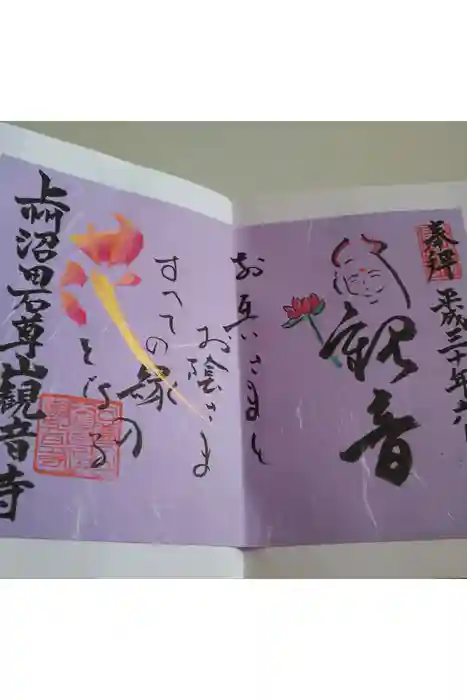 奉拝
平成三十年六
観音
お互いさまと
お陰さま
すべての縁の
もとになる
上州沼田石尊山観音寺